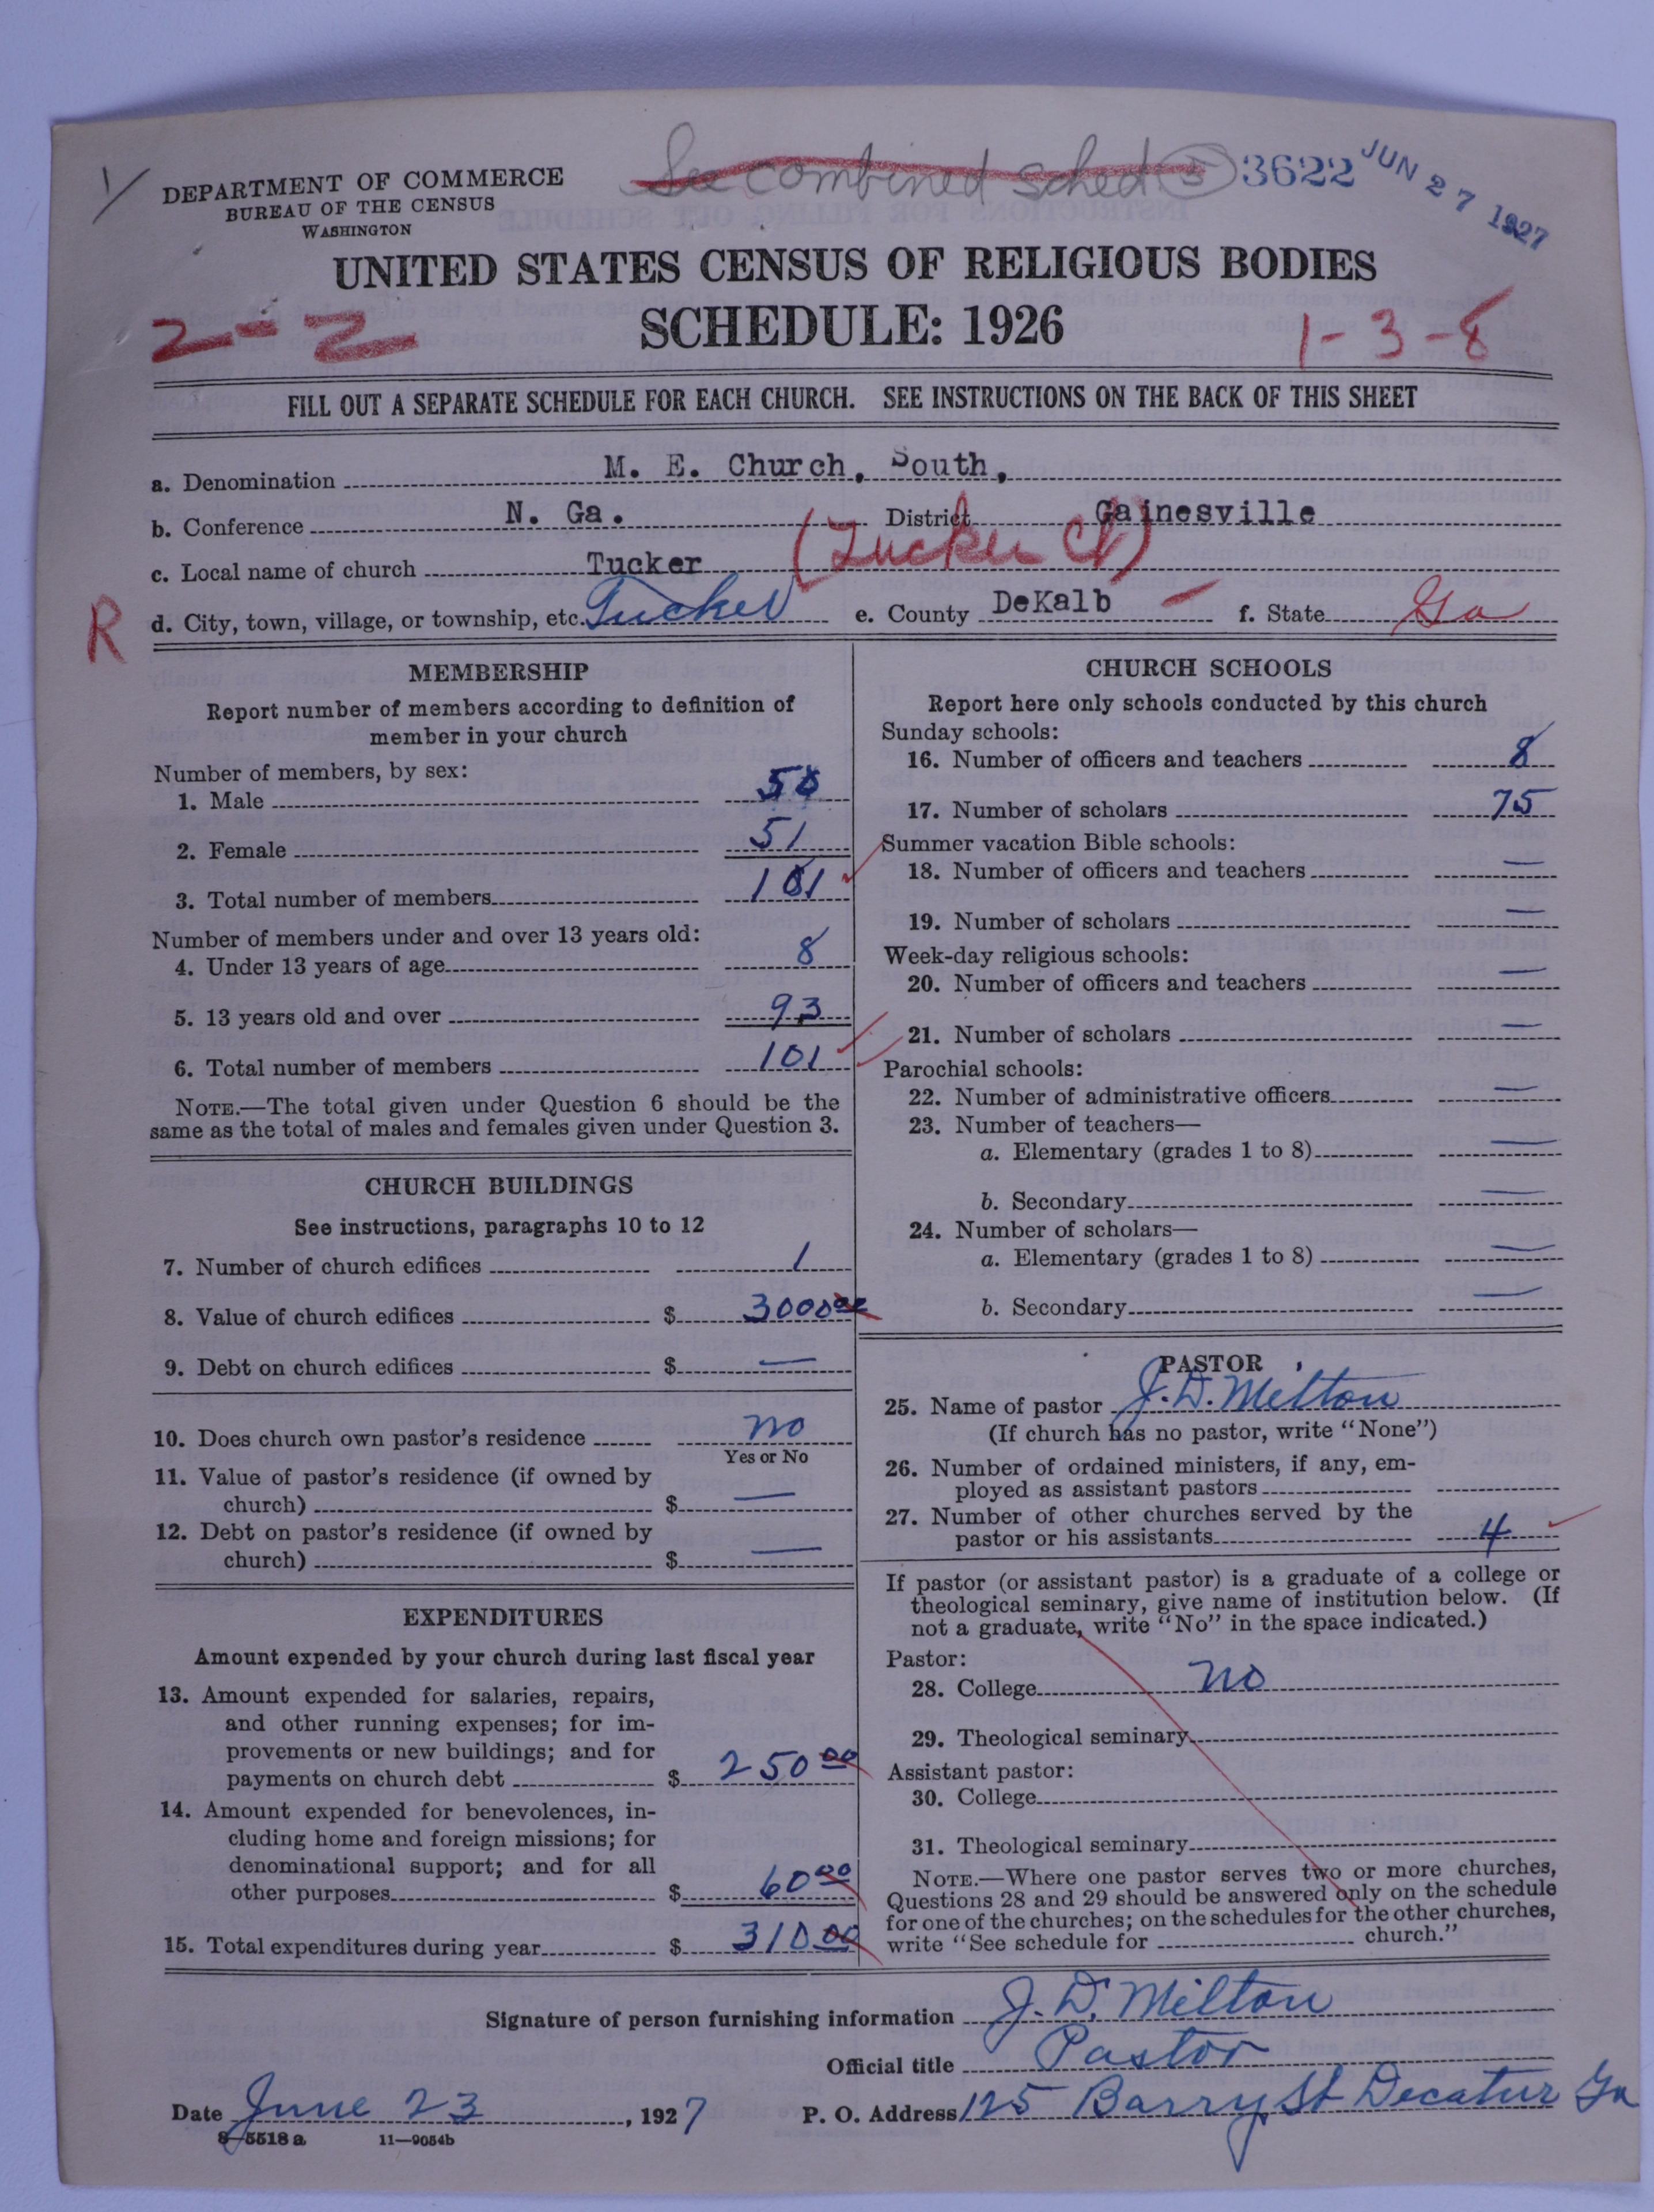 See combined sched 5 3622 JUN 27 1927
DEPARTMENT OF COMMERCE
BUREAU OF THE CENSUS
WASHINGTON
UNITED STATES CENSUS OF RELIGIOUS BODIES
2-2 SCHEDULE: 1926 1-3-8
FILL OUT A SEPARATE SCHEDULE FOR EACH CHURCH. SEE INSTRUCTIONS ON THE BACK OF THIS SHEET
a. Denomination M. E. Church, South,
b. Conference N. Ga. District Gainesville
c. Local name of church Tucker (Tucker Ct)
R d. City, town, village, or township, etc. Tucker e. County DeKalb f. State Ga
MEMBERSHIP
Report number of members according to definition of
member in your church
Number of members, by sex:
1. Male 50
2. Female 51
3. Total number of members 101
Number of members under and over 13 years old:
4. Under 13 years of age 8
5. 13 years old and over 93
6. Total number of members 101
NOTE.—The total given under Question 6 should be the
same as the total of males and females given under Question 3.
CHURCH BUILDINGS
See instructions, paragraphs 10 to 12
7. Number of church edifices 1
8. Value of church edifices $ 3000 00
9. Debt on church edifices $ —
10. Does church own pastor's residence no
Yes or No
11. Value of pastor's residence (if owned by
church) $ —
12. Debt on pastor's residence (if owned by
church) $ —
EXPENDITURES
Amount expended by your church during last fiscal year
13. Amount expended for salaries, repairs,
and other running expenses; for im-
provements or new buildings; and for
payments on church debt $ 250 00
14. Amount expended for benevolences, in-
cluding home and foreign missions; for
denominational support; and for all
other purposes $ 60 00
15. Total expenditures during year $ 310 00
CHURCH SCHOOLS
Report here only schools conducted by this church
Sunday schools:
16. Number of officers and teachers 8
17. Number of scholars 75
Summer vacation Bible schools:
18. Number of officers and teachers —
19. Number of scholars —
Week-day religious schools:
20. Number of officers and teachers —
21. Number of scholars —
Parochial schools:
22. Number of administrative officers —
23. Number of teachers—
a. Elementary (grades 1 to 8) —
b. Secondary —
24. Number of scholars—
a. Elementary (grades 1 to 8) —
b. Secondary —
PASTOR
25. Name of pastor J. D. Milton
(If church has no pastor, write "None")
26. Number of ordained ministers, if any, em-
ployed as assistant pastors
27. Number of other churches served by the
pastor or his assistants 4
If pastor (or assistant pastor) is a graduate of a college or
theological seminary, give name of institution below. (If
not a graduate, write "No" in the space indicated.)
Pastor:
28. College no
29. Theological seminary
Assistant pastor:
30. College
31. Theological seminary
NOTE.—Where one pastor serves two or more churches,
Questions 28 and 29 should be answered only on the schedule
for one of the churches; on the schedules for the other churches,
write "See schedule for church."
Signature of person furnishing information J. D. Milton
Official title Pastor
Date June 23, 1927 P. O. Address 125 Barry St Decatur Ga
8—5518 a 11—9054b